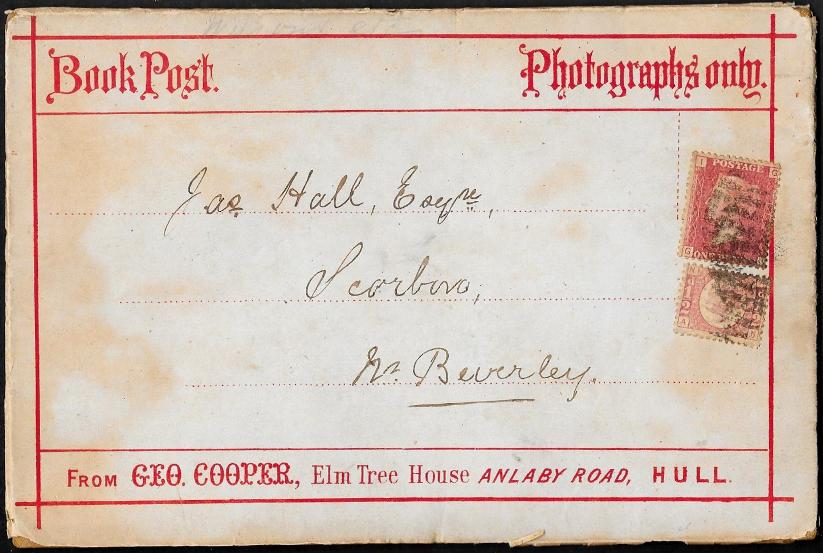 Book Post.
Photographs only.
Jas Hall, Esqre,
Scorbro,
Nr Beverley.
I POSTAGE G
G ONE
FROM GEO. COOPER, Elm Tree House ANLABY ROAD, HULL.